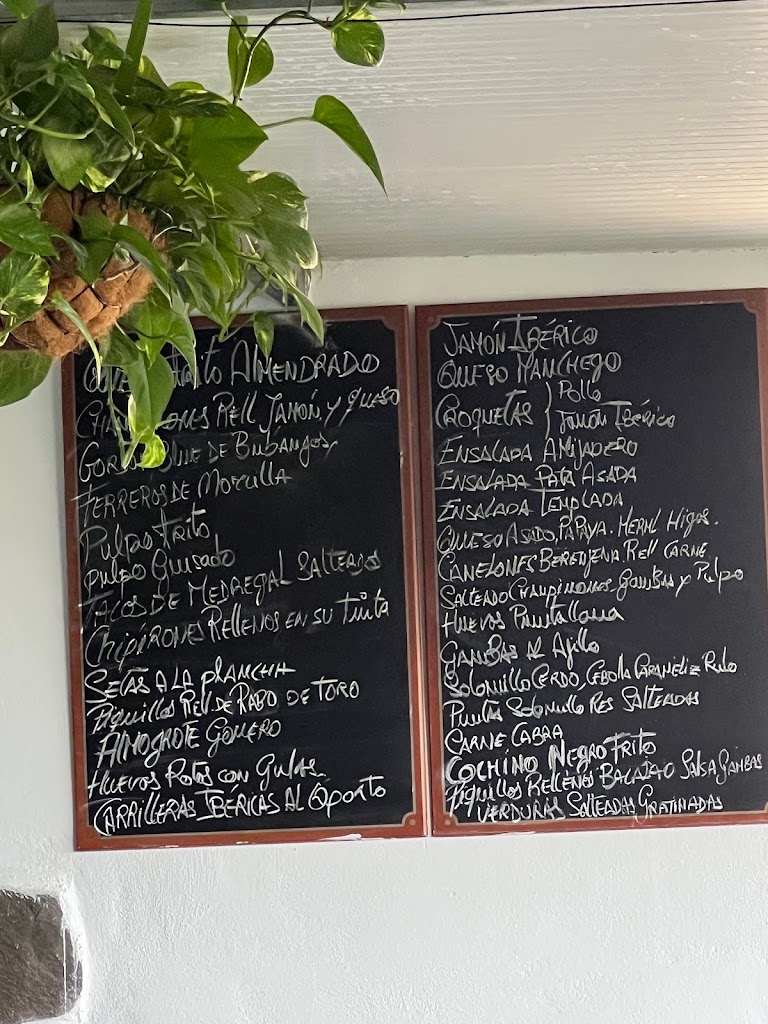 Frito Almendrado
Rell Jamón y Queso
de Bubangos
Ferreros de Morcilla
Pulpo Frito
Pulpo Guisado
Tacos de Medregal Salteados
Chipirones Rellenos en su tinta
Setas a la plancha
Piquillos Rell de Rabo de Toro
Almogrote Gomero
Huevos Rotos con Gulas
Carrilleras Ibéricas al Oporto
Jamón Ibérico
Queso Manchego
Croquetas } Pollo
Jamón Ibérico
Ensalada Amijadero
Ensalada Pata Asada
Ensalada Templada
Queso Asado, Papaya. Merml Higos.
Canelones Berenjena, Rell Carne
Salteado Champiñones, gambas y Pulpo
Huevos
Gambas al Ajillo
Solomillo Cerdo, Cebolla Carameliz
Puntas Solomillo Res Salteadas
Carne Cabra
Cochino Negro Frito
Piquillos Rellenos Bacalao Salsa Gambas
Verduras Salteadas Gratinadas